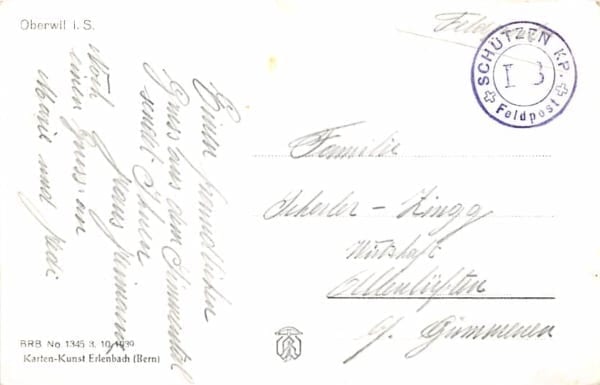 Oberwil i. S.
Feldpost
SCHÜTZEN KP.
I 3
Feldpost
Einen freundlichen
Gruss aus dem Simmental
sendet Ihnen
Hans
Noch
einen Gruss an
Marie und Hedi
Familie
Scherler - Zingg
Wirtschaft
Ollenlüften
b/ Gümmenen
BRB No. 1345 3. 10. 1939
Karten-Kunst Erlenbach (Bern)